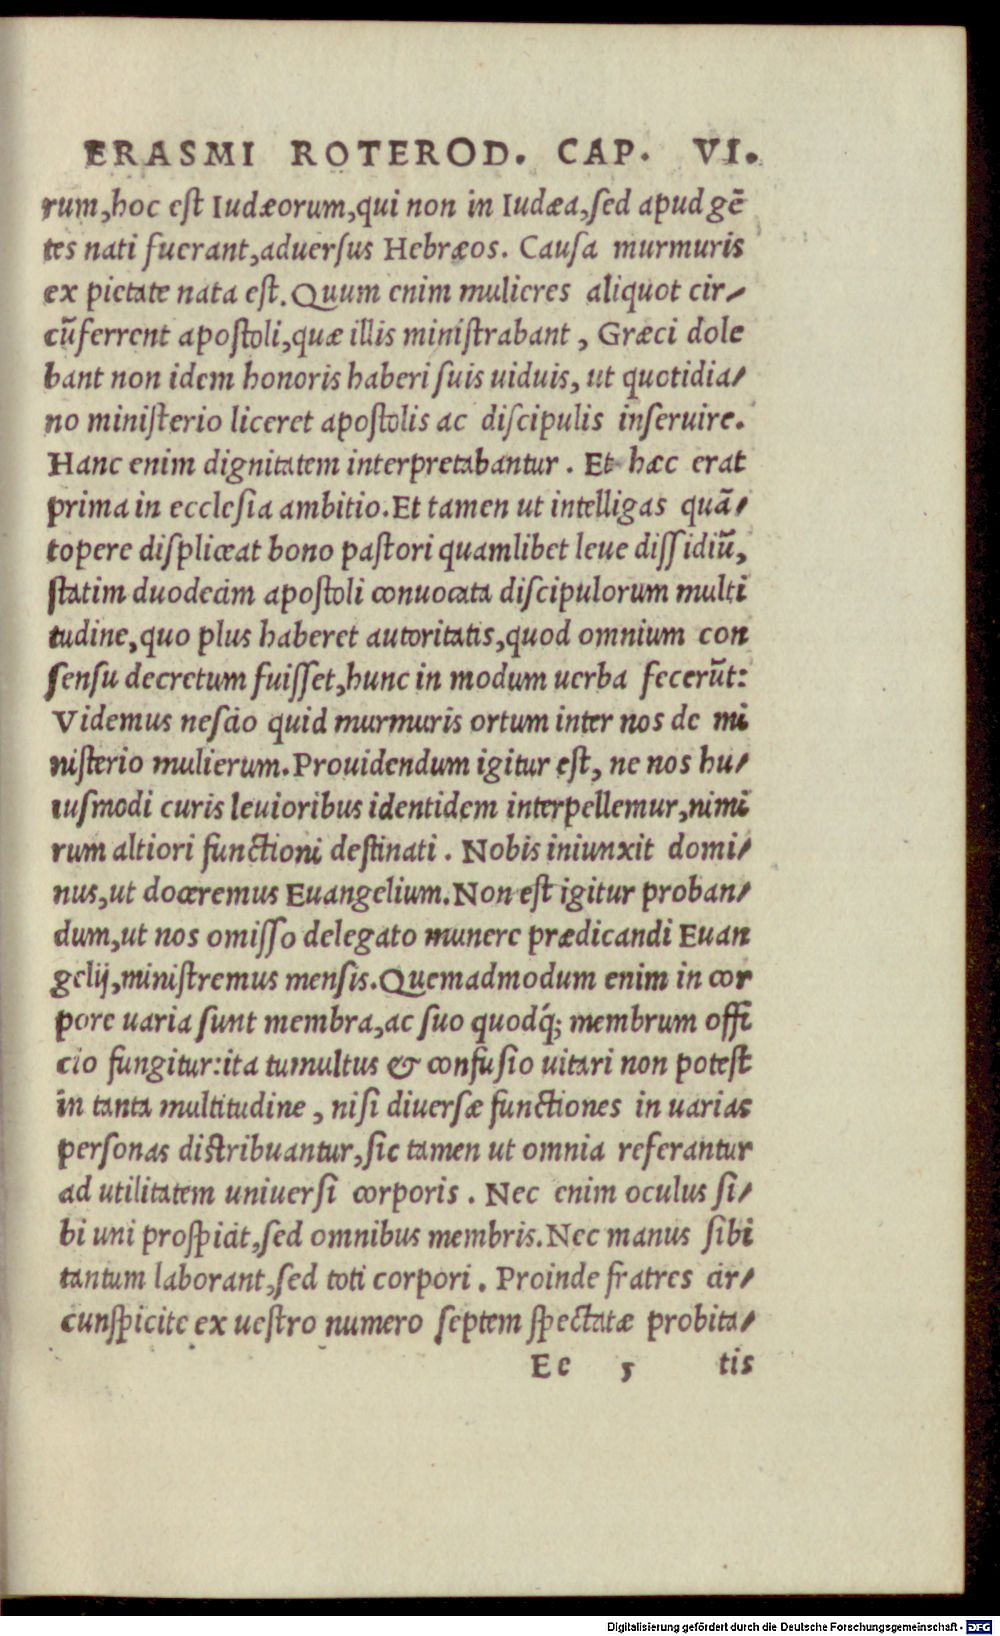 ERASMI ROTEROD. CAP. VI.
rum, hoc est Iudæorum, qui non in Iudæa, sed apud gē
tes nati fuerant, aduersus Hebræos. Causa murmuris
ex pietate nata est. Quum enim mulieres aliquot cir-
cūferrent apostoli, quæ illis ministrabant, Græci dole
bant non idem honoris haberi suis uiduis, ut quotidia-
no ministerio liceret apostolis ac discipulis inseruire.
Hanc enim dignitatem interpretabantur. Et hæc erat
prima in ecclesia ambitio. Et tamen ut intelligas quā-
topere displiceat bono pastori quamlibet leue dissidiū,
statim duodecim apostoli conuocata discipulorum multi
tudine, quo plus haberet autoritatis, quod omnium con
sensu decretum fuisset, hunc in modum uerba fecerūt:
Videmus nescio quid murmuris ortum inter nos de mi
nisterio mulierum. Prouidendum igitur est, ne nos hu-
iusmodi curis leuioribus identidem interpellemur, nimi
rum altiori functioni destinati. Nobis iniunxit domi-
nus, ut doceremus Euangelium. Non est igitur proban-
dum, ut nos omisso delegato munere prædicandi Euan
gelij, ministremus mensis. Quemadmodum enim in cor
pore uaria sunt membra, ac suo quodq́; membrum offi
cio fungitur: ita tumultus & confusio uitari non potest
in tanta multitudine, nisi diuersæ functiones in uarias
personas distribuantur, sic tamen ut omnia referantur
ad utilitatem uniuersi corporis. Nec enim oculus si-
bi uni prospicit, sed omnibus membris. Nec manus sibi
tantum laborant, sed toti corpori. Proinde fratres cir-
cunspicite ex uestro numero septem spectatæ probita-
Ee 5 tis
Digitalisierung gefördert durch die Deutsche Forschungsgemeinschaft - DFG